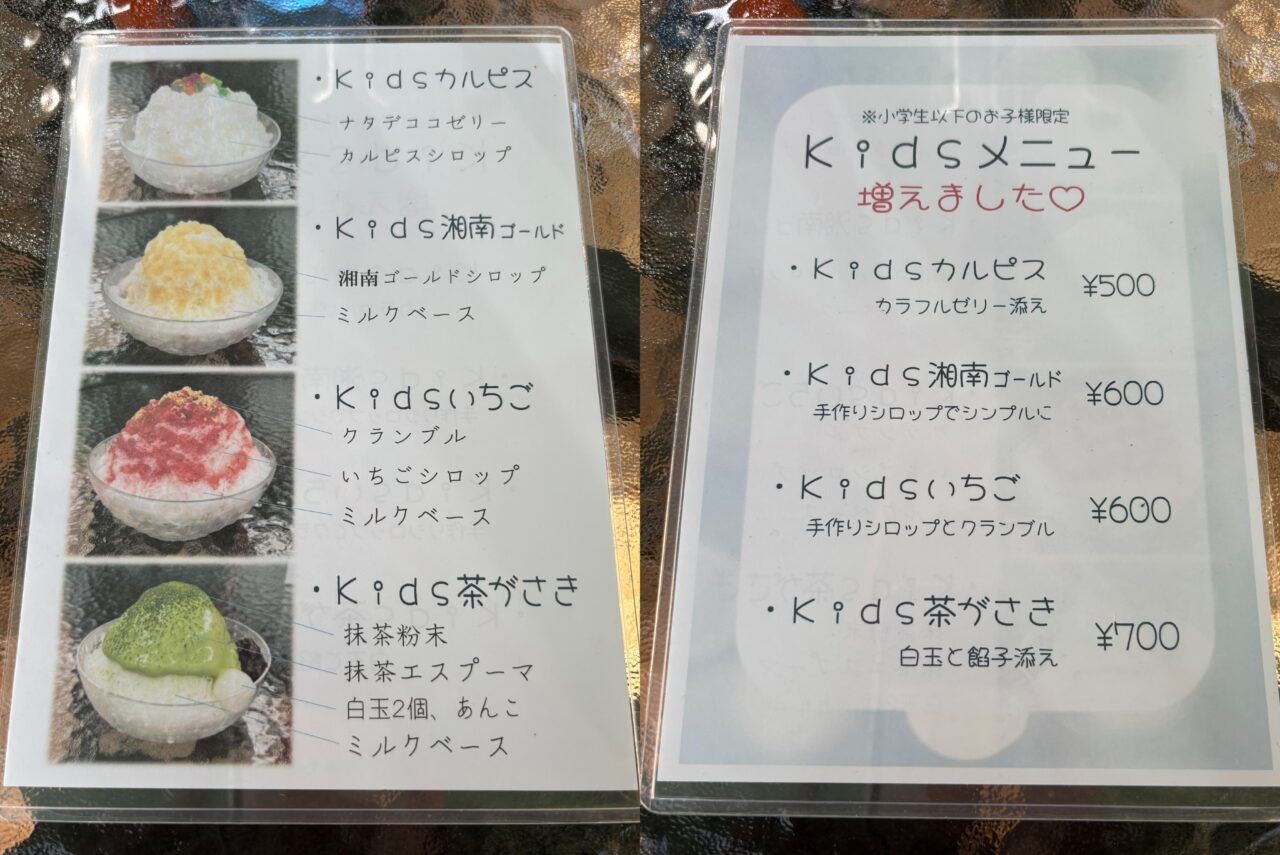 ・Kidsカルピス
ナタデココゼリー
カルピスシロップ
・Kids湘南ゴールド
湘南ゴールドシロップ
ミルクベース
・Kidsいちご
クランブル
いちごシロップ
ミルクベース
・Kids茶がさき
抹茶粉末
抹茶エスプーマ
白玉2個、あんこ
ミルクベース
※小学生以下のお子様限定
Kidsメニュー
増えました♡
・Kidsカルピス ¥500
カラフルゼリー添え
・Kids湘南ゴールド ¥600
手作りシロップでシンプルに
・Kidsいちご ¥600
手作りシロップとクランブル
・Kids茶がさき ¥700
白玉と餡子添え